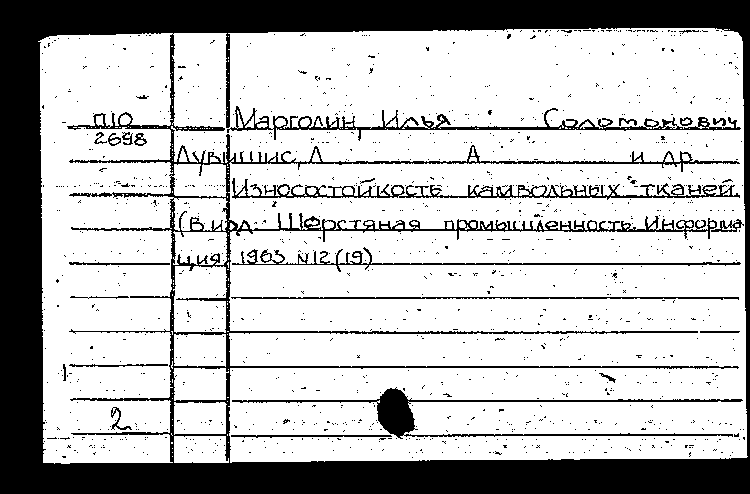 П10 Марголин, Илья Соломонович
2698
Лувишис, Л А и др.
Износостойкость камвольных тканей.
(В изд: Шерстяная промышленность. Информа
ция, 1963 №12 (19)
2